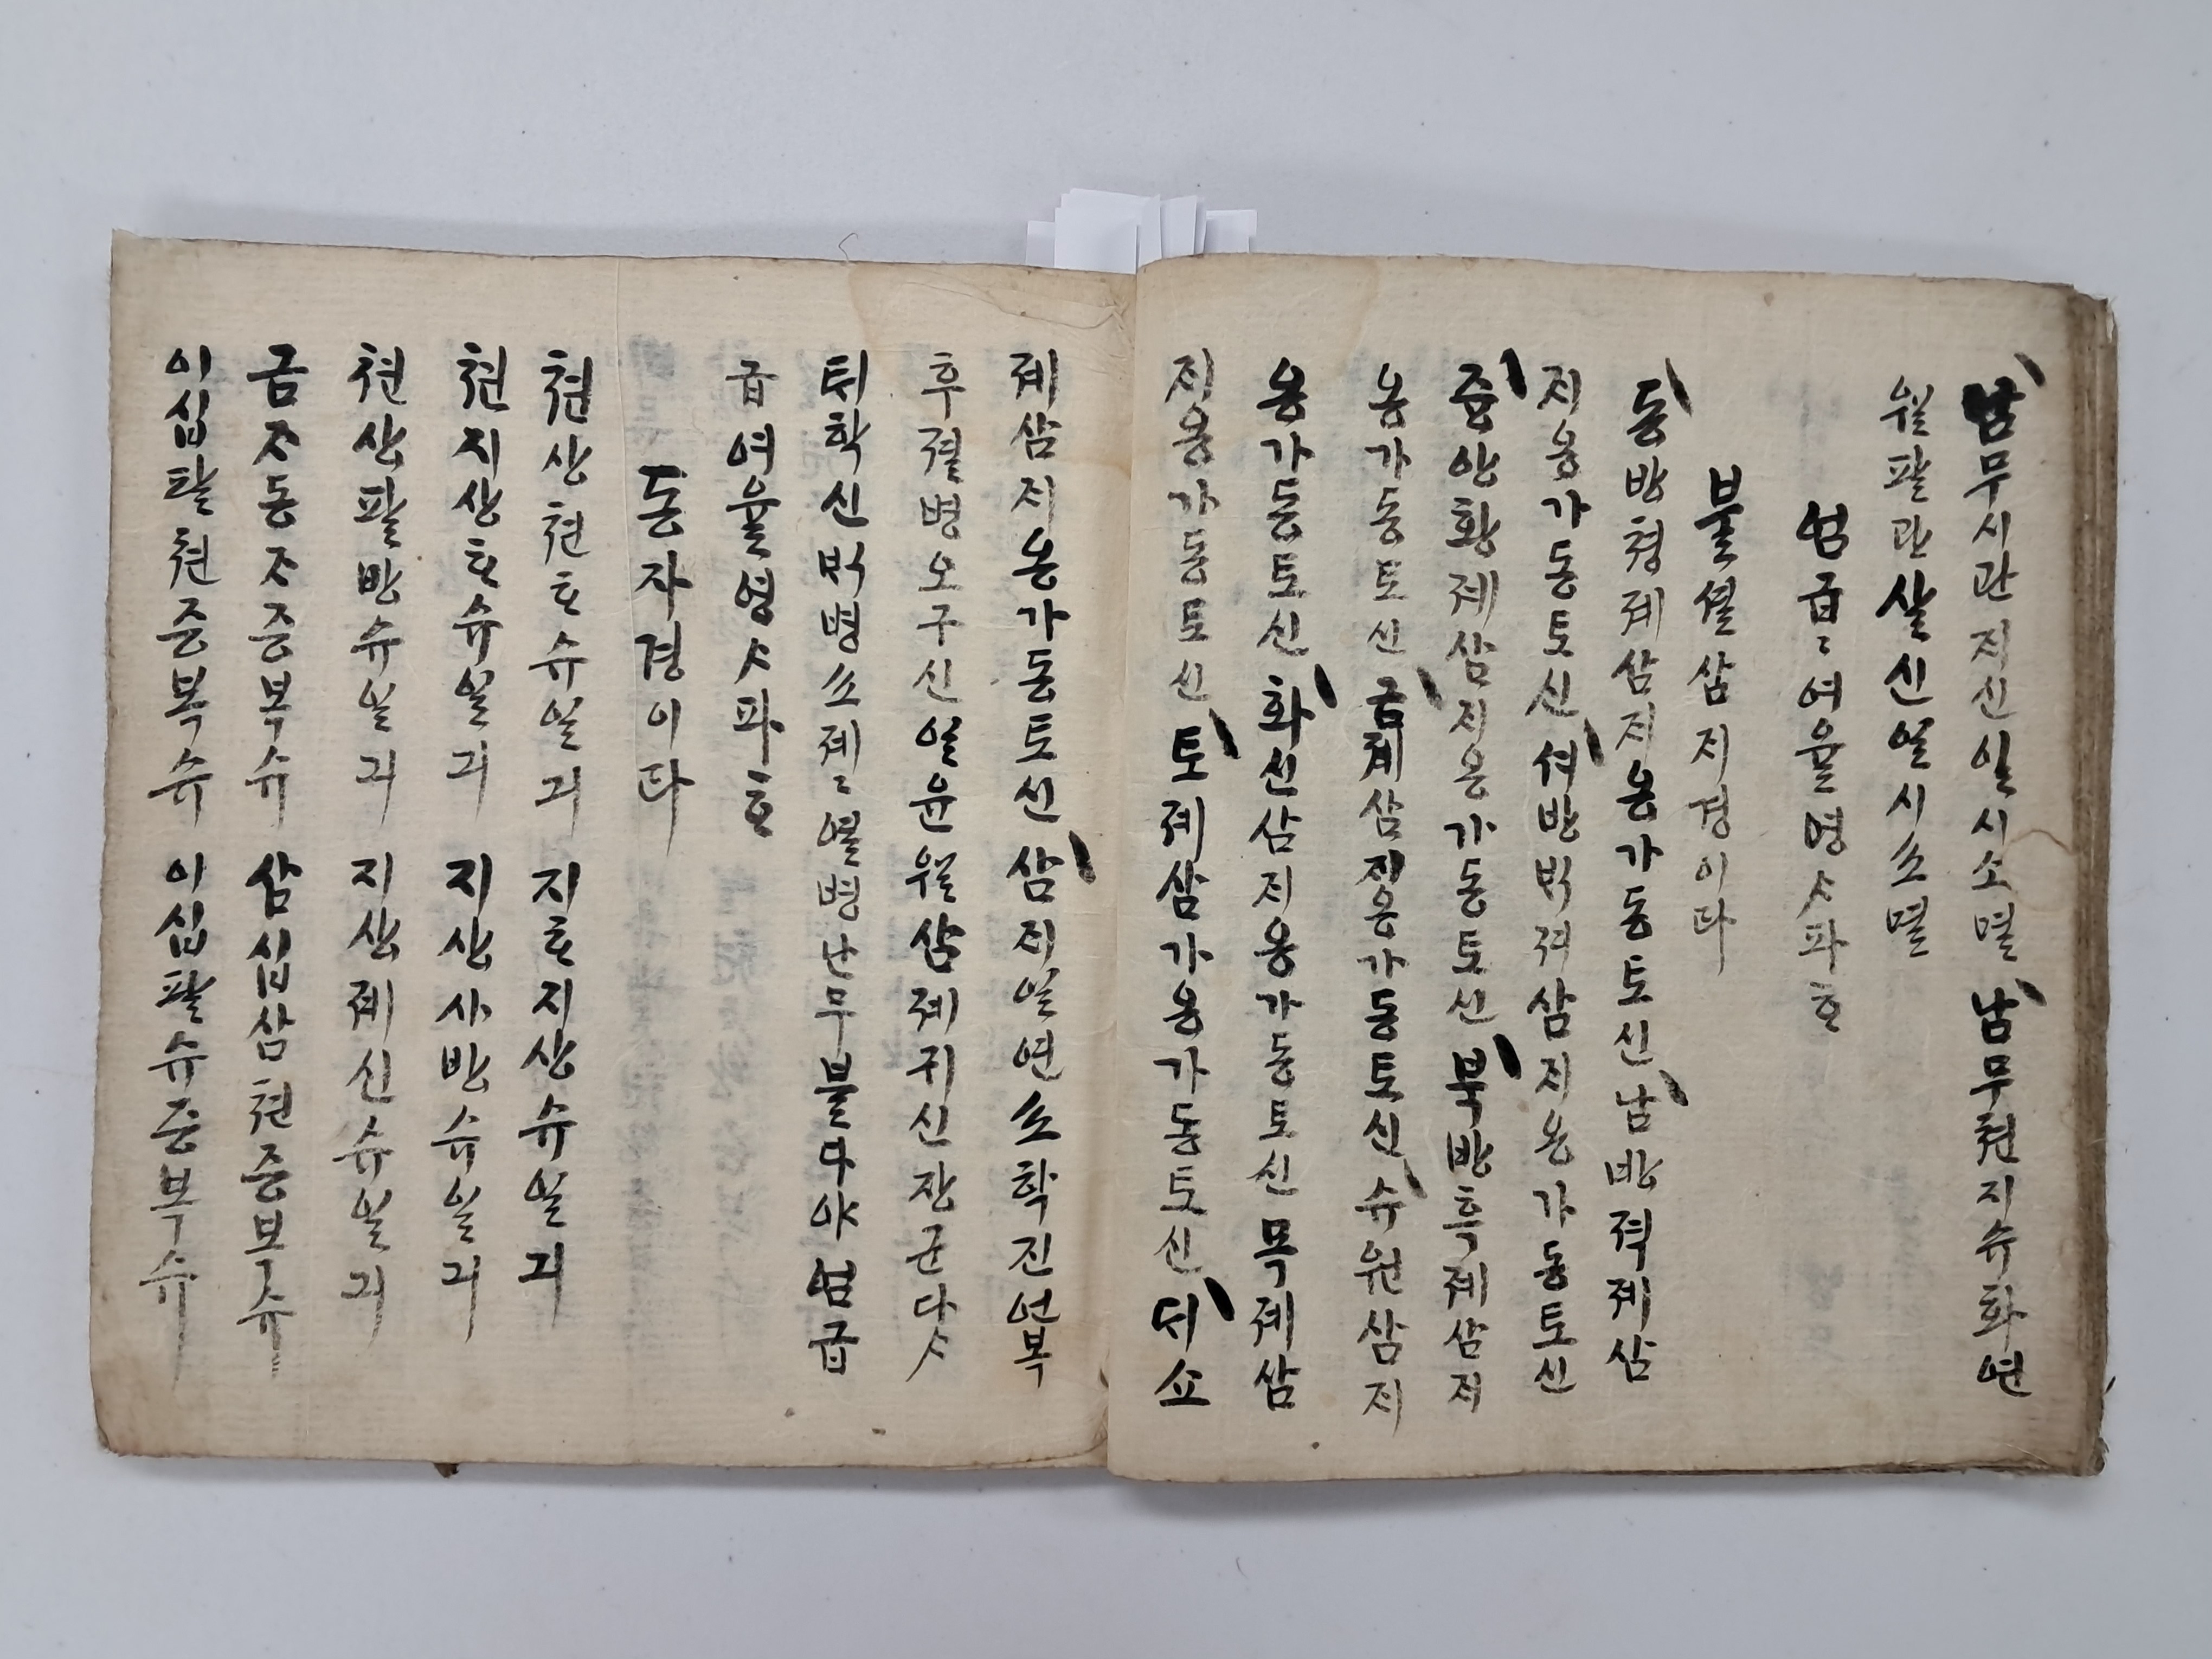 남무시관지신일시소멸 남무쳔지슈화연
월팔관살신일시소멸
엄급〻여율명ᄉ파ᄒ
불셜삼지경이다
동방쳥졔삼지용가동토신 남방젹졔삼
지용가동토신 셔방ᄇᆡᆨ졔삼지용가동토신
즁앙황졔삼지용가동토신 북방흑졔삼지
용가동토신 금졔삼지용가동토신 슈원삼지
용가동토신 화신삼지용가동토신 목졔삼
지용가동토신 토졔삼가용가동토신 ᄃᆡ쇼
졔삼지용가동토신 삼지일연소학진언복
후결병오구신일윤월삼졔귀신장군다ᄉ
퇴학신ᄇᆡᆨ병소졔〻열병난무불다야 엄급
급여율영ᄉ파ᄒ
동자경이다
쳔상쳔ᄒ슈일긔 지ᄒ지상슈일긔
쳔지상ᄒ슈일긔 지상사방슈일긔
쳔상팔방슈일긔 지상졔신슈일긔
금ᄌ동ᄌ즁복슈 삼십삼쳔즁복슈
이십팔쳔즁복슈 이십팔슈즁복슈